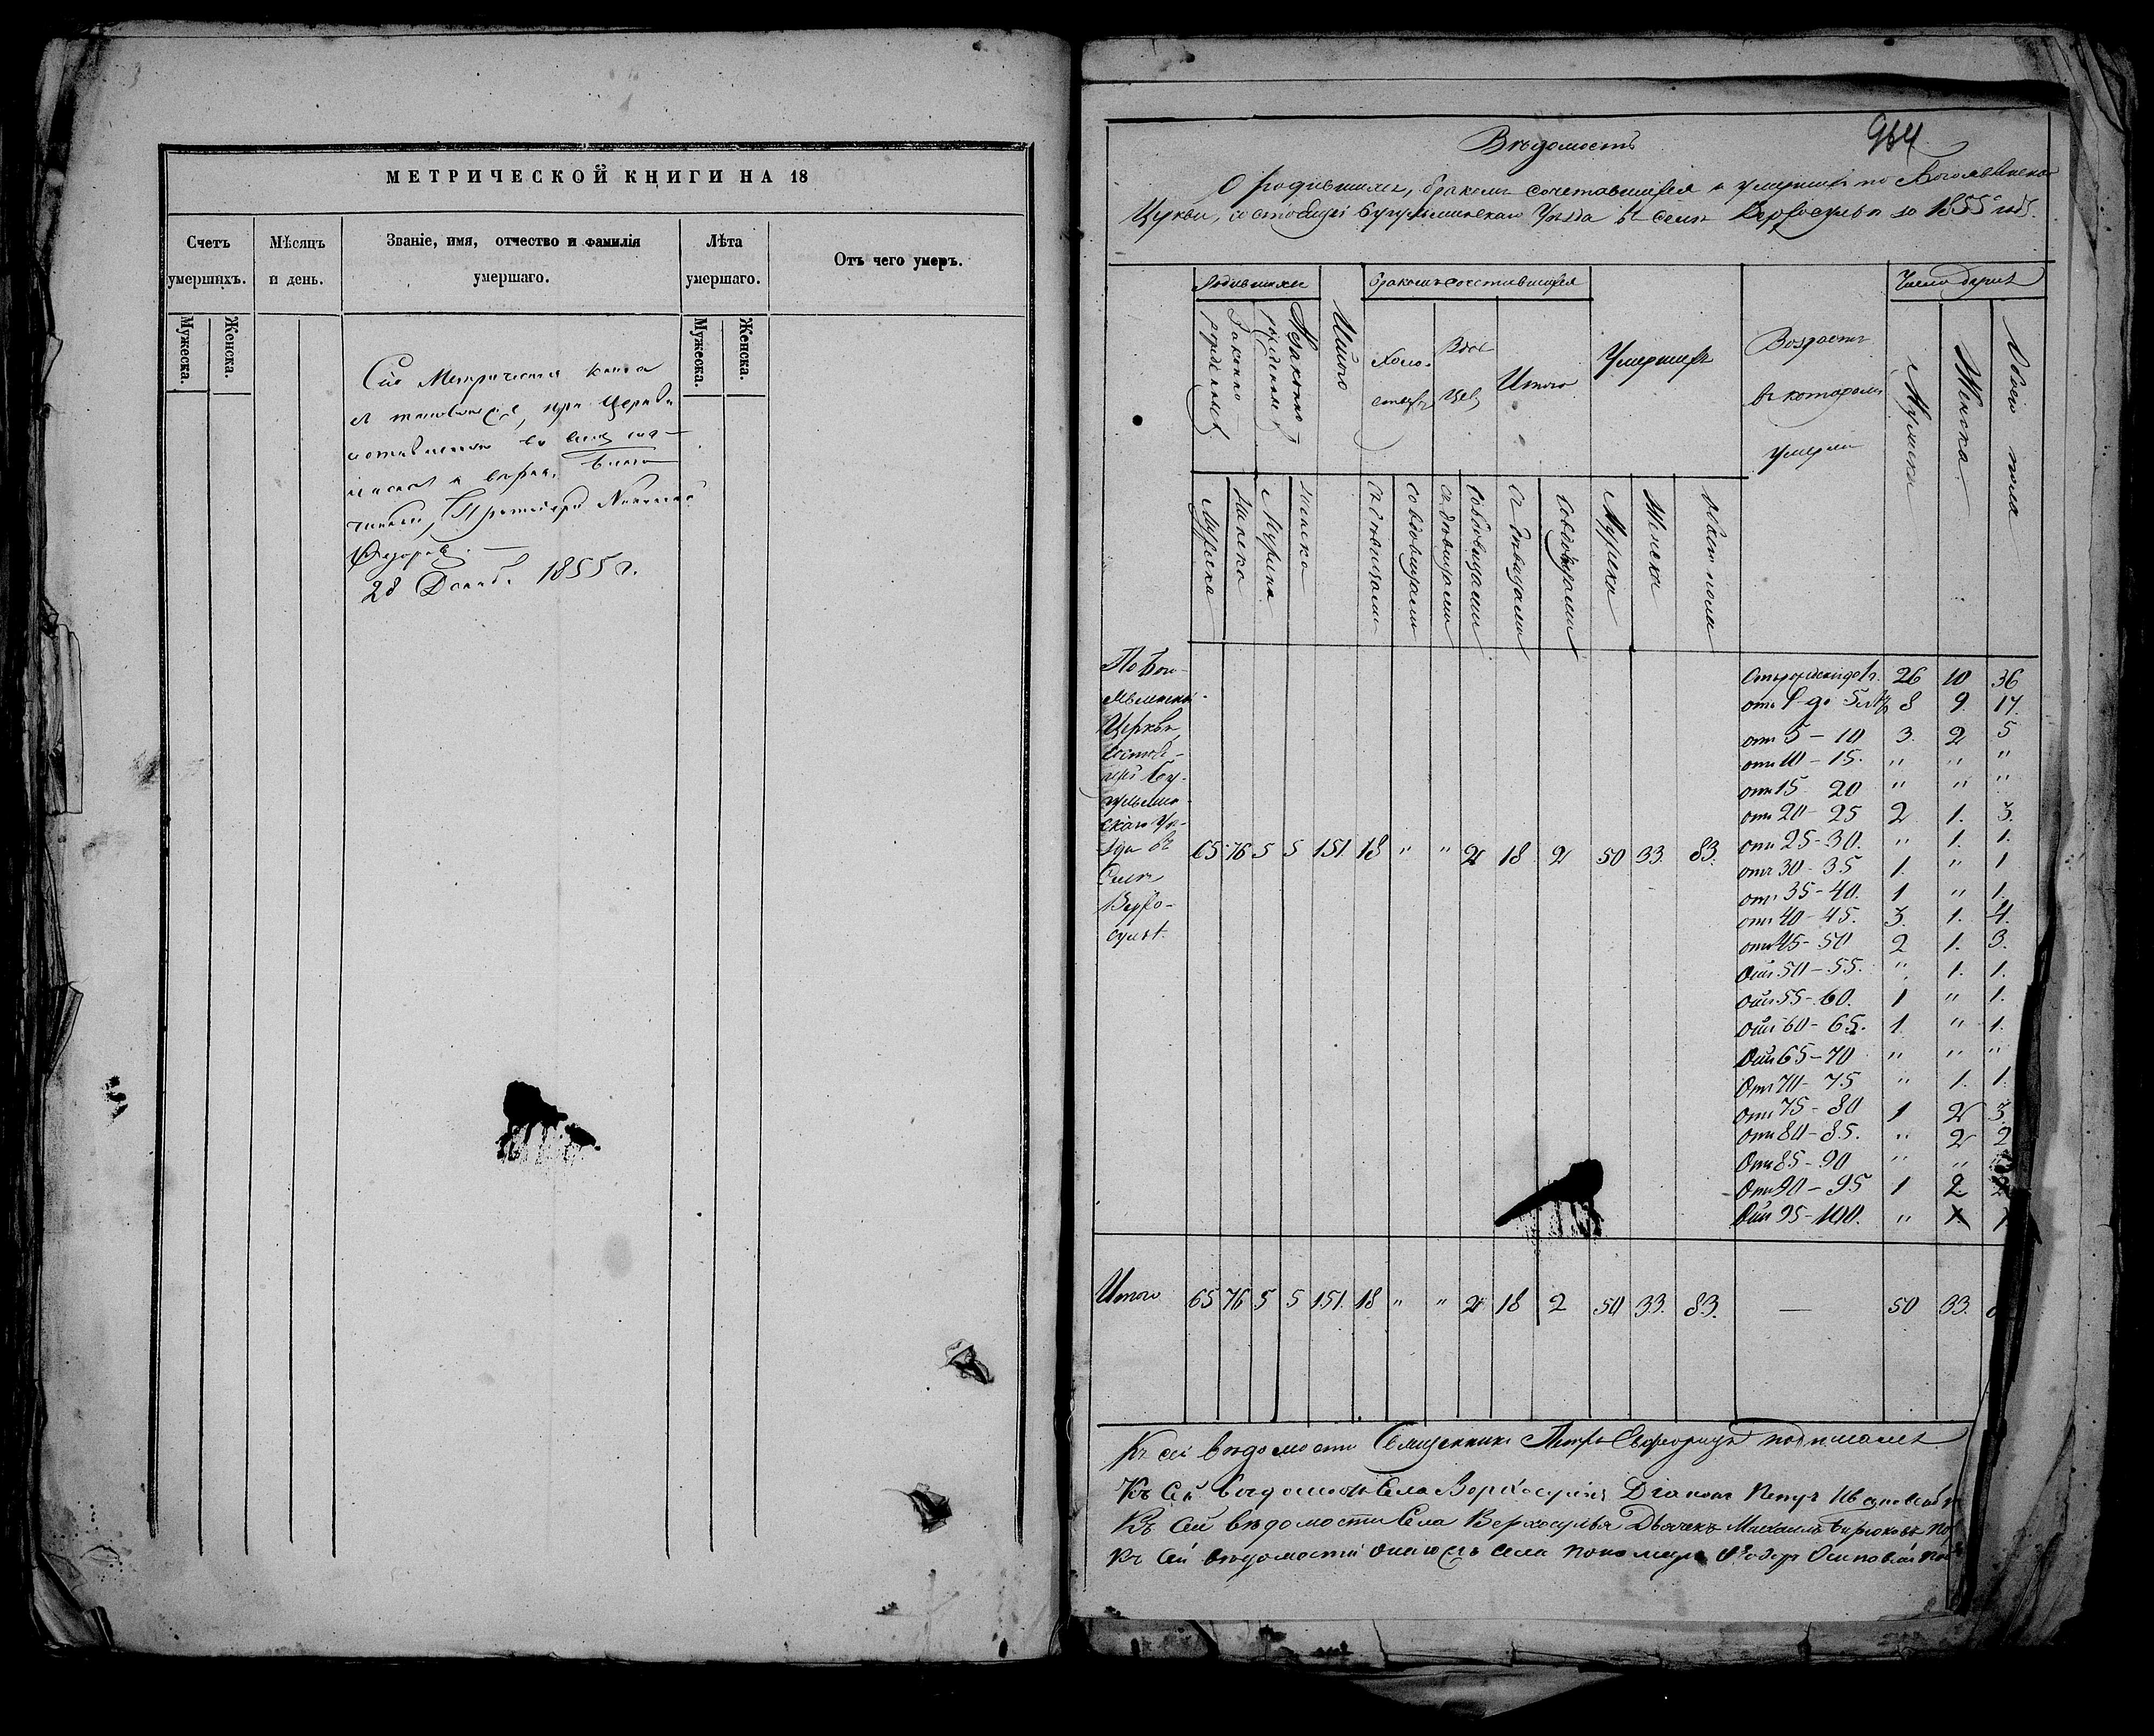 МЕТРИЧЕСКОЙ КНИГИ НА 18
Счетъ умершихъ.
Мужеска.
Женска.
Мѣсяцъ и день.
Званіе, имя, отчество и фамилія
умершаго.
Лѣта умершаго.
Мужеска.
Женска.
Отъ чего умеръ.
Сія Метрическая книга
при Церкви
и вѣрна.
Федоров
28 Декаб. 1855 г.
964
Вѣдомость
О родившихся, бракомъ сочетавшихся и умершихъ по Богоявленской
Церкви, состоящей Бугульминскаго Уѣзда въ селѣ Верхосульѣ за 1855 годъ.
Родившихся
Законно рожденныхъ
Незаконно рожденныхъ
Итого
Бракомъ сочетавшихся
Холостыхъ
Вдовцевъ
Итого
Умершихъ
Возрастъ
въ которомъ
умерли
Число душъ
Мужска
Женска
Обоего пола
Мужска
Женска
Мужска
Женска
Съ дѣвицами
Со вдовицами
Съ дѣвицами
Со вдовицами
Съ дѣвицами
Со вдовицами
Мужска
Женска
Обоего пола
По Бого-
явленской
Церкви,
состоя-
щей Бу-
гульмин-
скаго Уѣ-
зда въ
Селѣ
Верхо-
сульѣ.
65 76 5 5 151. 18 " " 2 18 2 50 33. 83.
Отъ рожденія до 1г. 26 10 36
отъ 1 до 5 лѣтъ 8 9. 17.
отъ 5 - 10 3. 2 5
отъ 10 - 15. " " "
отъ 15 20 " " "
отъ 20 - 25 2 1. 3.
отъ 25 - 30. " 1. 1.
отъ 30 - 35 1. " 1
отъ 35 - 40. 1 " 1.
отъ 40 - 45. 3. 1. 4.
отъ 45 - 50 2 1. 3.
Отъ 50 - 55. " 1. 1.
Отъ 55 - 60. 1 " 1.
Отъ 60 - 65. 1. " 1.
Отъ 65 - 70 " " "
Отъ 70 - 75 " 1. 1.
Отъ 75 - 80 1 2 3.
Отъ 80 - 85. " 2 2
Отъ 85 - 90 " "
Отъ 90 - 95 1 2
Отъ 95 - 100. " 1 1
Итого 65 76 5 5 151. 18 " " 2 18 2 50 33. 83. — 50 33.
Къ сей вѣдомости Священникъ Петръ подписался
Къ сей вѣдомости Села Верхосулья Діаконъ Петръ
Къ сей вѣдомости Села Верхосулья Дьячекъ Михаилъ Бирюковъ
Къ сей вѣдомости онагожъ села пономарь Ѳеодоръ Осиповскій